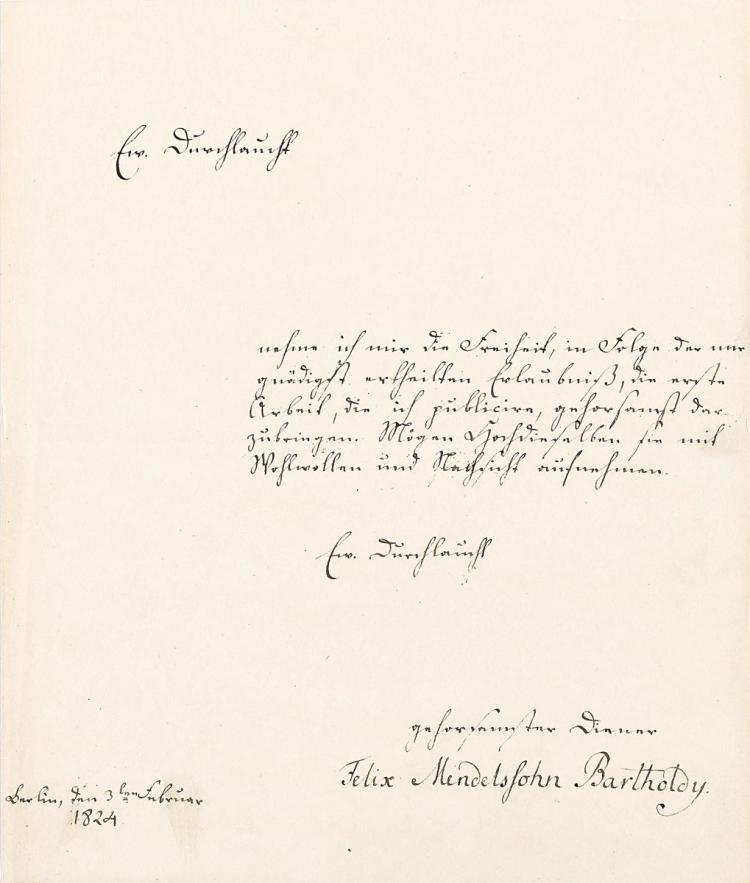 Ew. Durchlaucht
nehme ich mir die Freiheit, in Folge der mir
gnädigst ertheilten Erlaubniß, die erste
Arbeit, die ich publicire, gehorsamst dar-
zubringen. Mögen Hochdieselben sie mit
Wohlwollen und Nachsicht aufnehmen.
Ew. Durchlaucht
gehorsamster Diener
Felix Mendelssohn Bartholdy.
Berlin, den 3ten Februar
1824